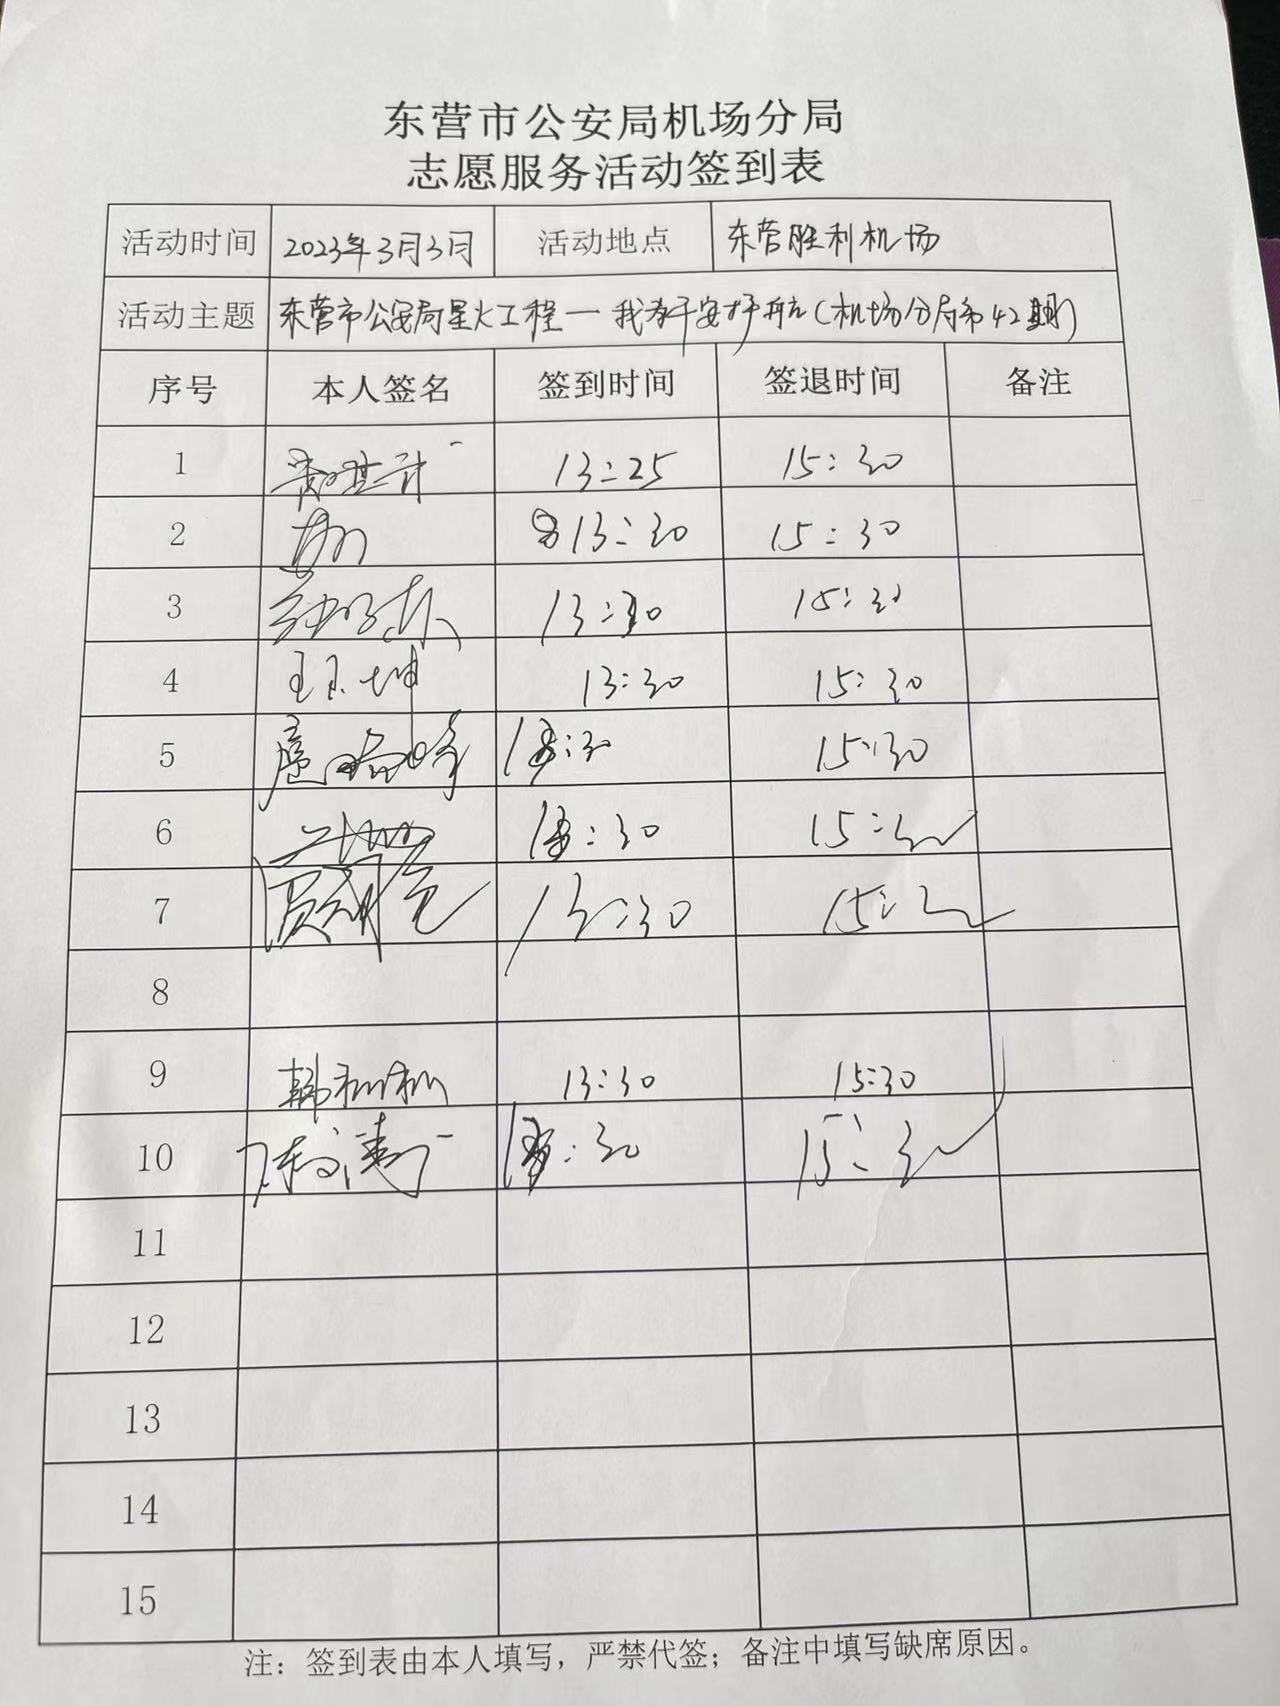 东营市公安局机场分局
志愿服务活动签到表
活动时间 2023年3月3日 活动地点 东营胜利机场
活动主题 东营市公安局星火工程一我为平安护航(机场分局第42期)
序号 本人签名 签到时间 签退时间 备注
1 13:25 15:30
2 13:30 15:30
3 13:30 15:30
4 王玉坤 13:30 15:30
5 :30 15:30
6 :30 15:30
7 13:30 15:30
8
9 13:30 15:30
10 :30 15:30
11
12
13
14
15
注：签到表由本人填写，严禁代签；备注中填写缺席原因。